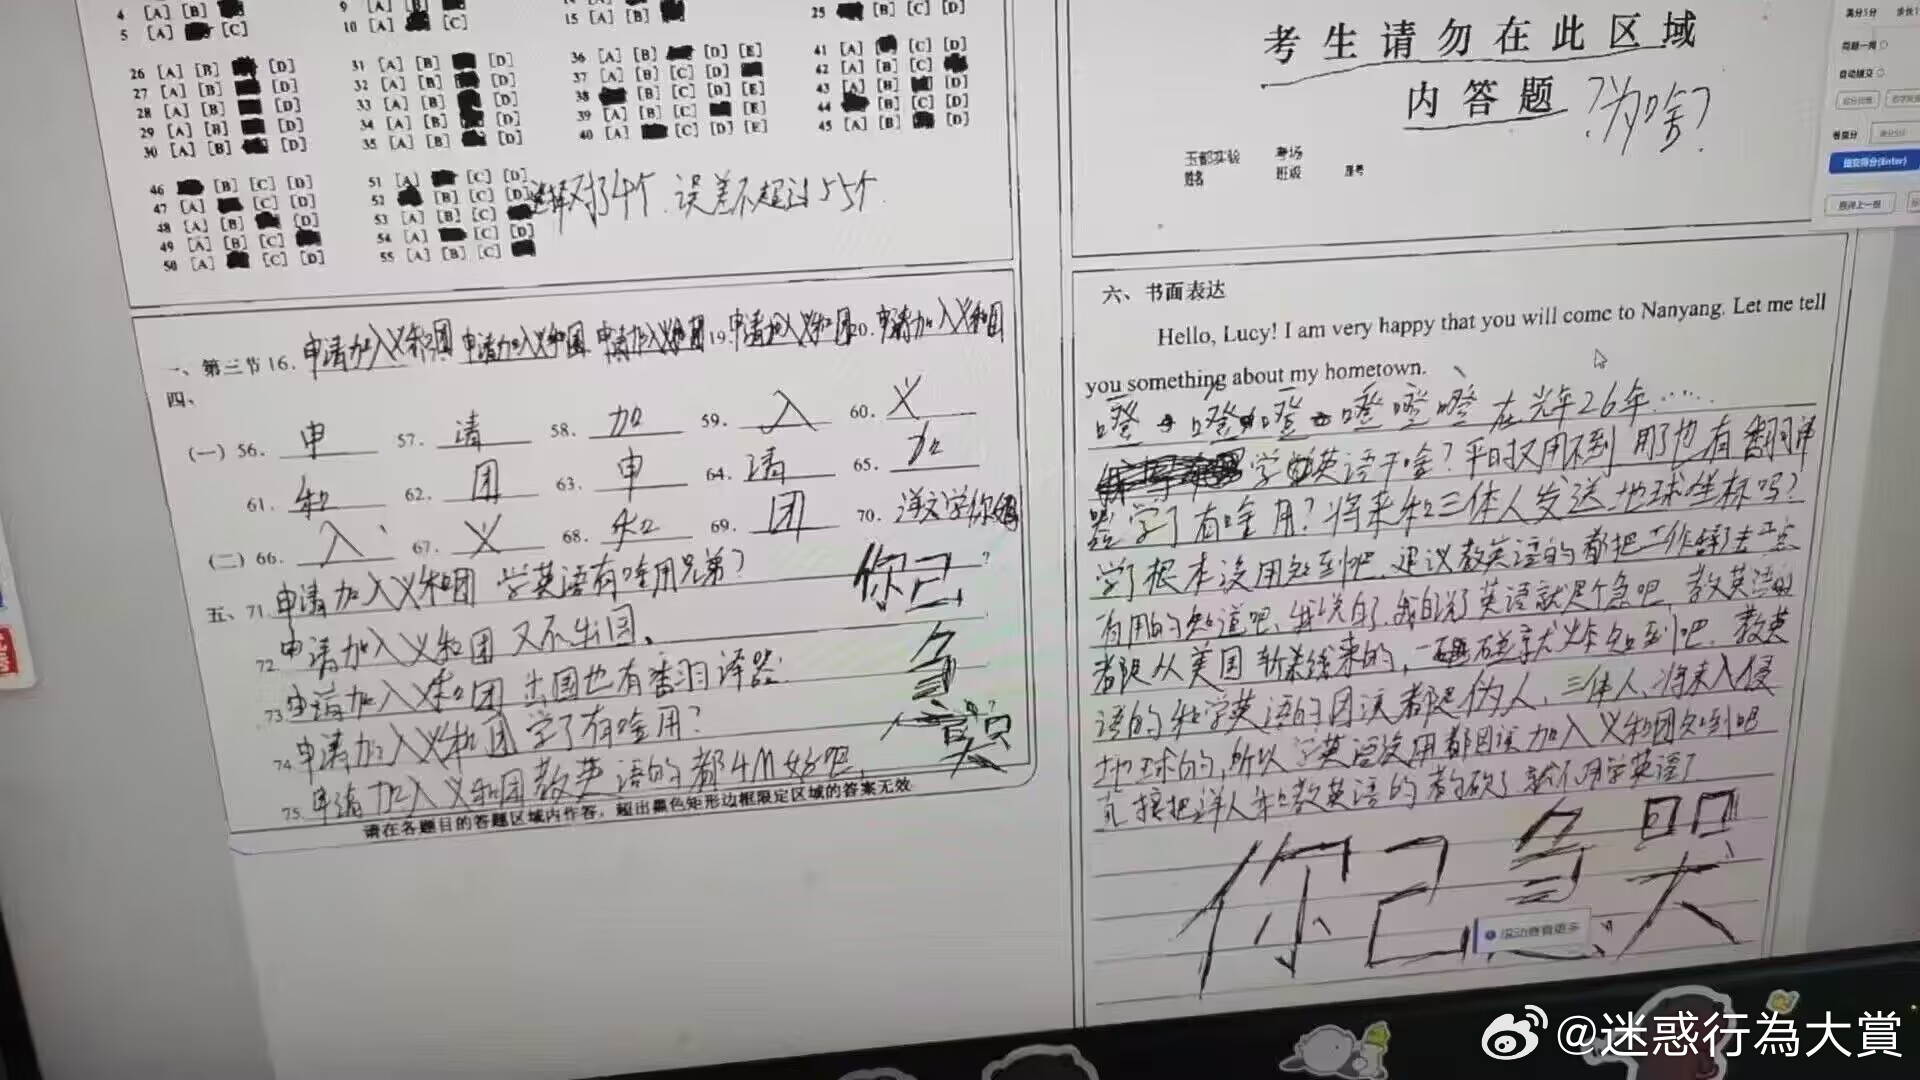 4 [A] [B]
5 [A] [C]
9 [A] [B]
10 [A] [C]
15 [A] [B]
25 [B] [C] [D]
26 [A] [B] [D]
27 [A] [B] [D]
28 [A] [B] [D]
29 [A] [B] [D]
30 [A] [B] [D]
31 [A] [B] [D]
32 [A] [B] [D]
33 [A] [B] [D]
34 [A] [B] [D]
35 [A] [B] [D]
36 [A] [B] [D] [E]
37 [A] [B] [C] [D]
38 [B] [C] [D] [E]
39 [A] [B] [C] [E]
40 [A] [C] [D] [E]
41 [A] [C] [D]
42 [A] [B] [C]
43 [A] [B] [D]
44 [B] [C] [D]
45 [A] [B] [D]
46 [B] [C] [D]
47 [A] [C] [D]
48 [A] [B] [D]
49 [A] [B] [C]
50 [A] [C] [D]
51 [A] [C] [D]
52 [B] [C] [D]
53 [A] [B] [C]
54 [A] [C] [D]
55 [A] [B] [C]
选择对了4个.误差不超过55个.
一、第三节 16. 申请加入义和团 申请加入义和团 申请加入义和团 19. 申请加入义和团 20. 申请加入义和团
四、
(一) 56. 申 57. 请 58. 加 59. 入 60. 义
61. 和 62. 团 63. 申 64. 请 65. 加
(二) 66. 入 67. 义 68. 和 69. 团 70. 洋文学你妈
五、71. 申请加入义和团 学英语有啥用兄弟?
72. 申请加入义和团 又不出国.
73. 申请加入义和团 出国也有翻译器.
74. 申请加入义和团 学了有啥用?
75. 申请加入义和团教英语的都4M好吧.
请在各题目的答题区域内作答，超出黑色矩形边框限定区域的答案无效
考生请勿在此区域
内答题 ?为啥?
玉都实验 考场
姓名 班级 座号
满分5分
自动提交
提交得分(Enter)
六、书面表达
Hello, Lucy! I am very happy that you will come to Nanyang. Let me tell
you something about my hometown.
噔 噔 噔 噔 噔 噔 在光年26年……
学英语干啥?平时又用不到 用了也有翻译
器 学了有啥用?将来和三体人发送地球坐标吗?
学了根本没用知到吧.建议教英语的都把工作辞了去
有用的知道吧.我说白了.我白说了英语就是个急吧.教英语的
都是从美国 来的,一碰就炸知到吧.教英
语的和学英语的因该都是伪人、三体人、将来入侵
地球的,所以学英语没用都因该加入义和团知到吧
直接把洋人和教英语的都砍了就不用学英语了
滚动查看更多
@迷惑行為大賞